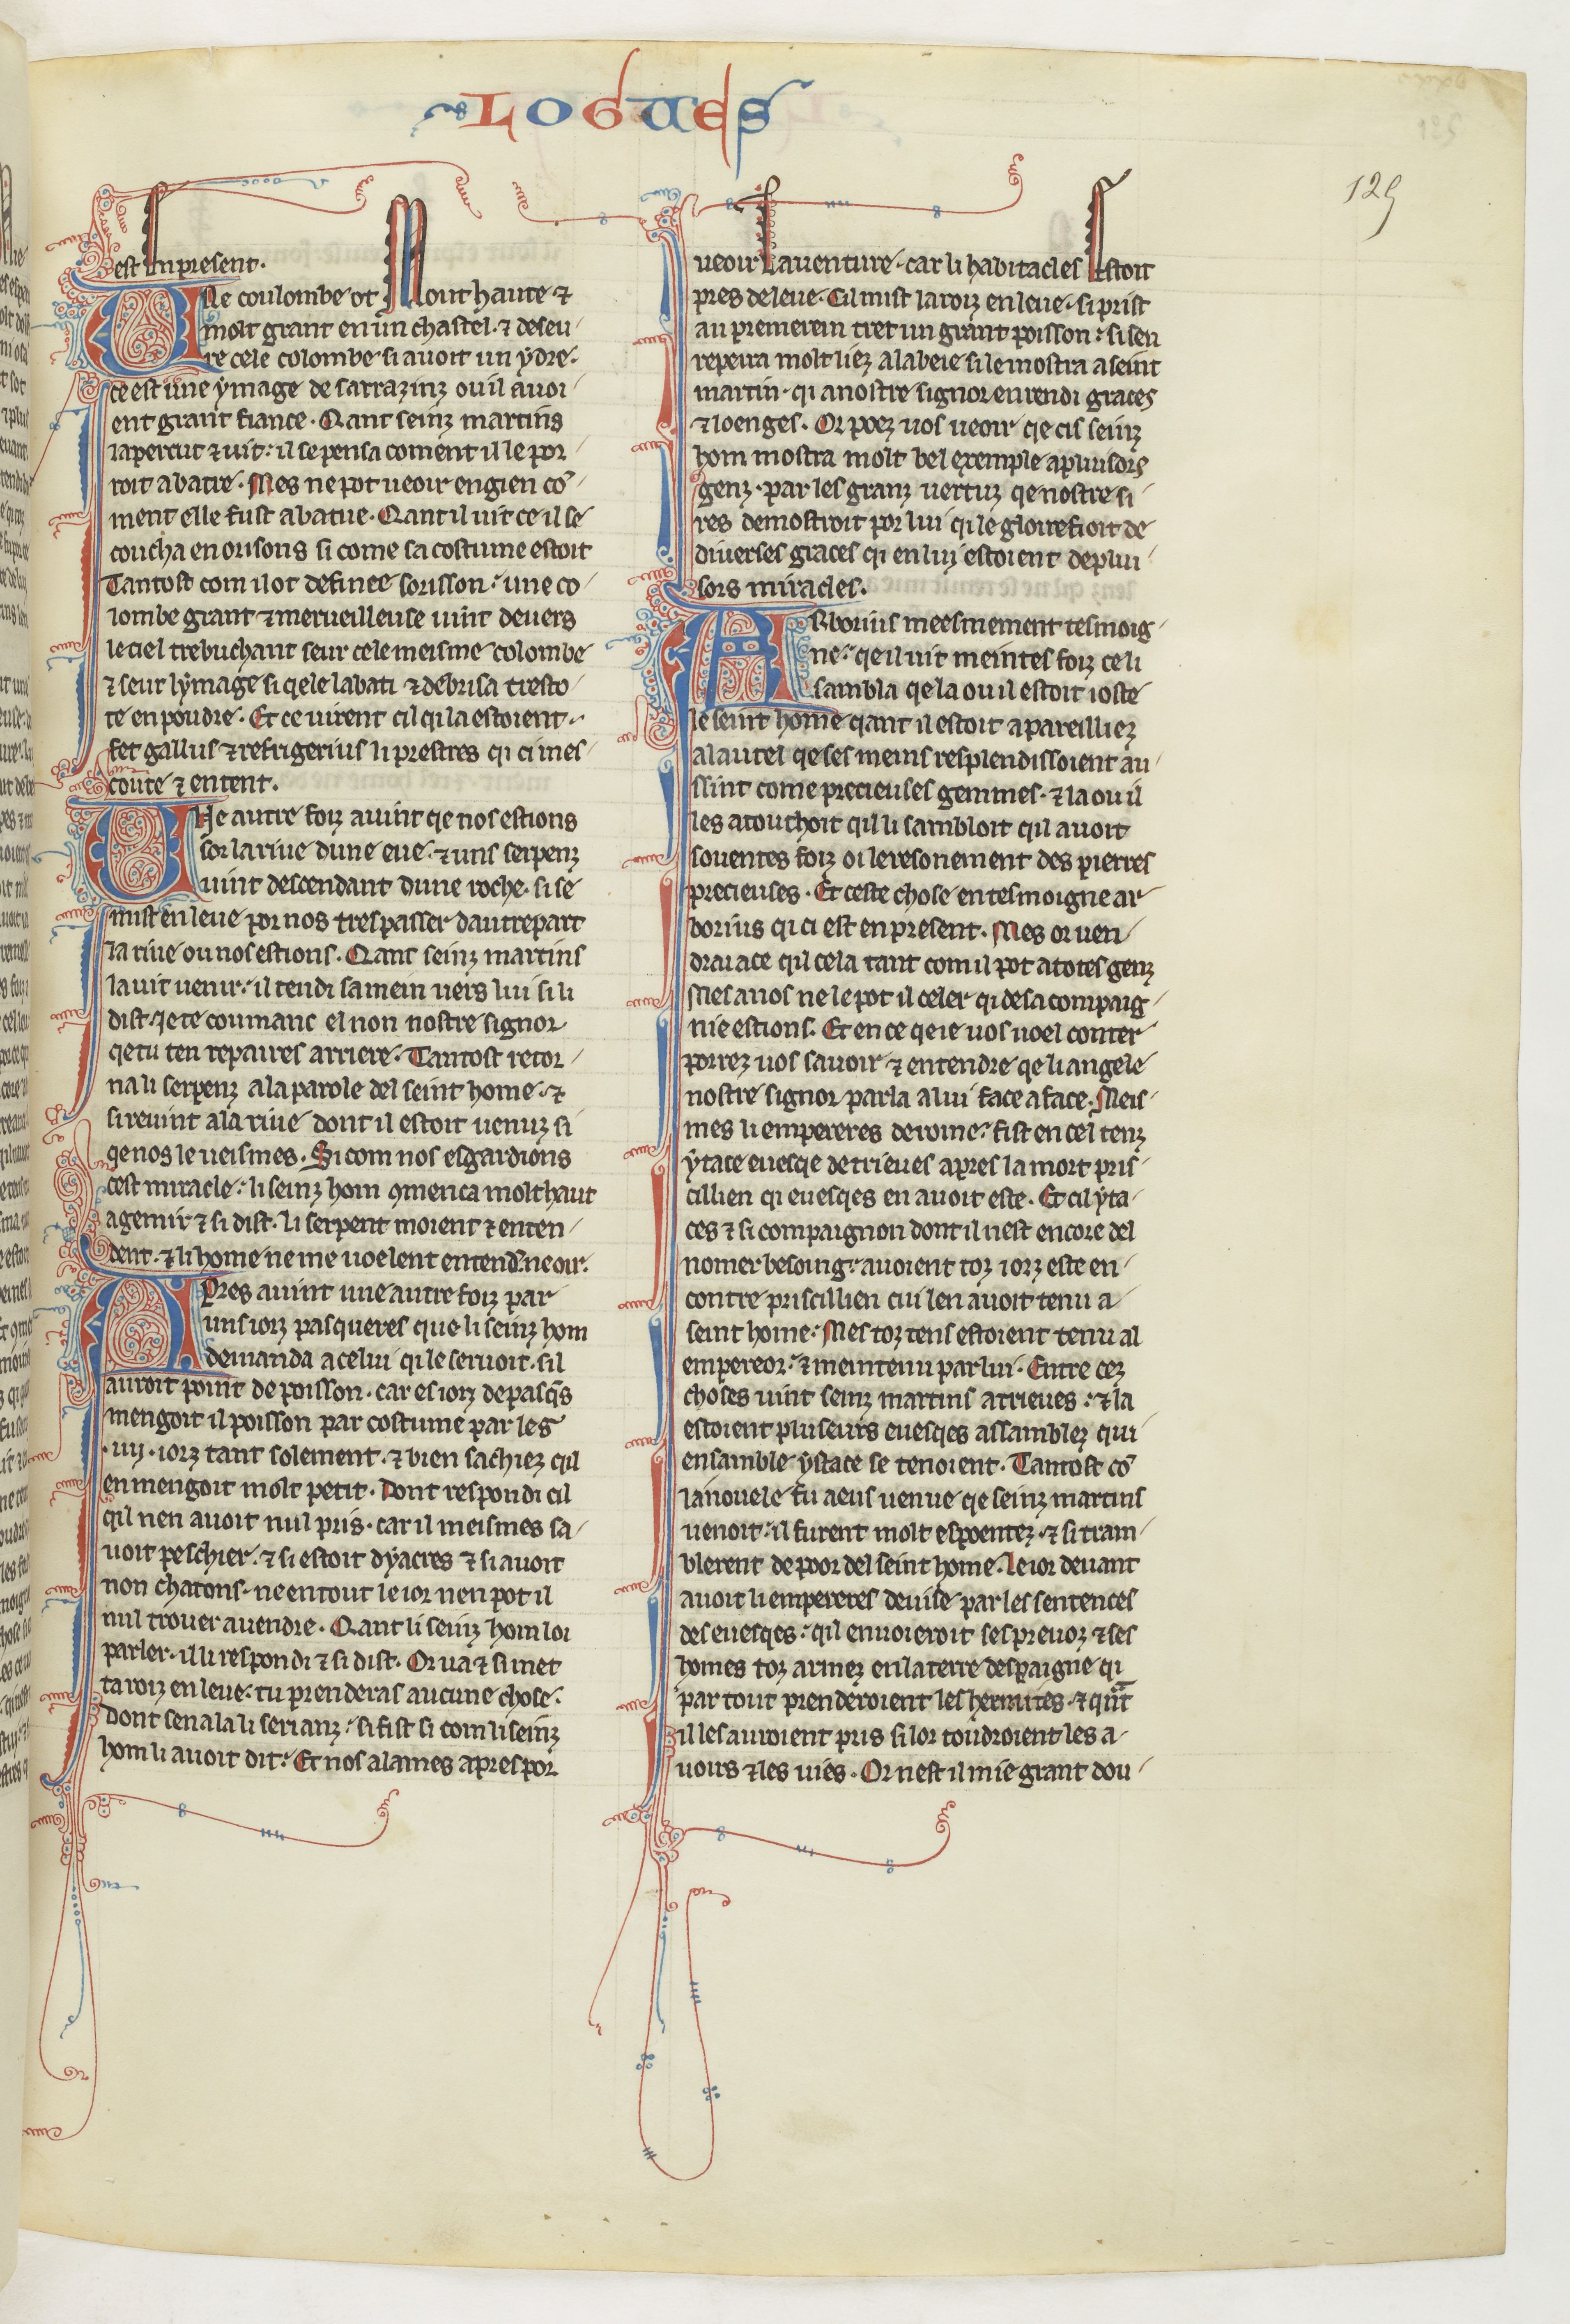 LOGUES
129
est en present.
UNe coulombe ot Mout haute ⁊
molt grant en un chastel. ⁊ deseu-
re cele colombe si auoit un ydre.
ce est une ymage de sarrazinz ou il auoi
ent grant fiance. Qant seinz martins
laperceut ⁊ uit: il se pensa coment il le por-
roit abatre. Mes ne pot ueoir engien co-
ment elle fust abatue. Qant il uit ce il se
coucha en orisons si come sa costume estoit
Tantost com il ot definee sorisson: une co-
lombe grant ⁊ merueilleuse uint deuers
le ciel trebuchant seur cele meisme colombe
⁊ seur lymage si qele labati ⁊ debrisa tresto-
te en poudre. Et ce uirent cil qi la estoient.
fet gallus ⁊ refrigerius li prestres qi ci mes-
coute ⁊ entent.
UNe autre foiz auint qe nos estions
sor la riue dune eue. ⁊ uns serpenz
uint descendant dune roche. si se
mist en leue por nos trespasser dautre part
la riue ou nos estions. Qant seinz martins
la uit uenir: il tendi sa mein uers lui si li
dist. Je te coumanc el non nostre signor
qe tu ten repaires arriere. Tantost retor-
na li serpenz a la parole del seint home. ⁊
si reuint a la riue dont il estoit uenuz si
qe nos le ueismes. Si com nos esgardions
cest miracle: li seinz hom 9menca molt haut
a gemir ⁊ si dist. li serpent moient ⁊ enten-
dent. ⁊ li home ne me uoelent entendꝛe ne oir.
APres auint une autre foiz par
uns iorz pasqueres que li seinz hom
demanda a celui qi le seruoit. sil
auroit point de poisson. car es iorz de pasqs
mengoit il poisson par costume par les
.iiij. iorz tant solement. ⁊ bien sachiez qil
en mengoit molt petit. Dont respondi cil
qil nen auoit nul pris. car il meismes sa-
uoit peschier. ⁊ si estoit dyacres ⁊ si auoit
non chatons. ne en tout le ior nen pot il
nul trouer a uendre. Qant li seinz hom loi
parler. il li respondi ⁊ si dist. Or ua ⁊ si met
ta roiz en leue: tu prenderas aucune chose.
Dont sen ala li serianz: si fist si com li seinz
hom li auoit dit: Et nos alames apres por
ueoir Lauenture. car li habitacles Estoit
pres de leue. Cil mist la roiz en leue. si prist
au premerein tret un grant poisson: si sen
repeira molt liez a labeie si le mostra a seint
martin. qi a nostre signor en rendi graces
⁊ loenges. Or poez uos ueoir qe cis seinz
hom mostra molt bel exemple a pluisors
genz. par les granz uertuz qe nostre si-
res demostroit por lui qi le glorefioit de
diuerses graces qi en lui estoient de plui-
sors miracles.
ARborius meesmement tesmoig-
ne: qe il uit meintes foiz ce li
sambla qe la ou il estoit ioste
le seint home qant il estoit apareilliez
a lautel qe ses meins resplendissoient au-
ssint come precieuses gemmes. ⁊ la ou il
les atouchoit qil li sambloit qil auoit
souentes foiz oi le resonement des pierres
precieuses. Et ceste chose en tesmoigne ar-
borius qi ci est en present. Mes or uen-
drai a ce qil cela tant com il pot a totes genz
Mes a nos ne le pot il celer qi de sa compaig-
nie estions. Et en ce qe ie uos uoel conter
porrez uos sauoir ⁊ entendre qe li angele
nostre signor parla a lui face a face. Meis-
mes li empereres de rome: fist en cel tenz
ytace euesqe de trieues apres la mort pris-
cillien qi euesqes en auoit este. Et cil yta-
ces ⁊ si compaignon dont il nest encore del
nomer besoing: auoient toz iorz este en-
contre priscillien cui len auoit tenu a
seint home: Mes toz tens estoient tenu al
empereor: ⁊ meintenu par lui. Entre cez
choses uint seinz martins a trieues: ⁊ la
estoient pluseurs euesqes assamblez qui
ensamble ystace se tenoient. Tantost co
la nouele fu a eus uenue qe seinz martins
uenoit: il furent molt espoentez. ⁊ si tram-
blerent de poor del seint home. Le ior deuant
auoit li empereres deuise par les sentences
des euesqes: qil enuoieroit ses preuoz ⁊ ses
homes toz armez en la terre despaigne qi
par tout prenderoient les hermites. ⁊ quant
il les auroient pris si lor toudroient les a-
uoirs ⁊ les uies. Or nest il mie grant dou-